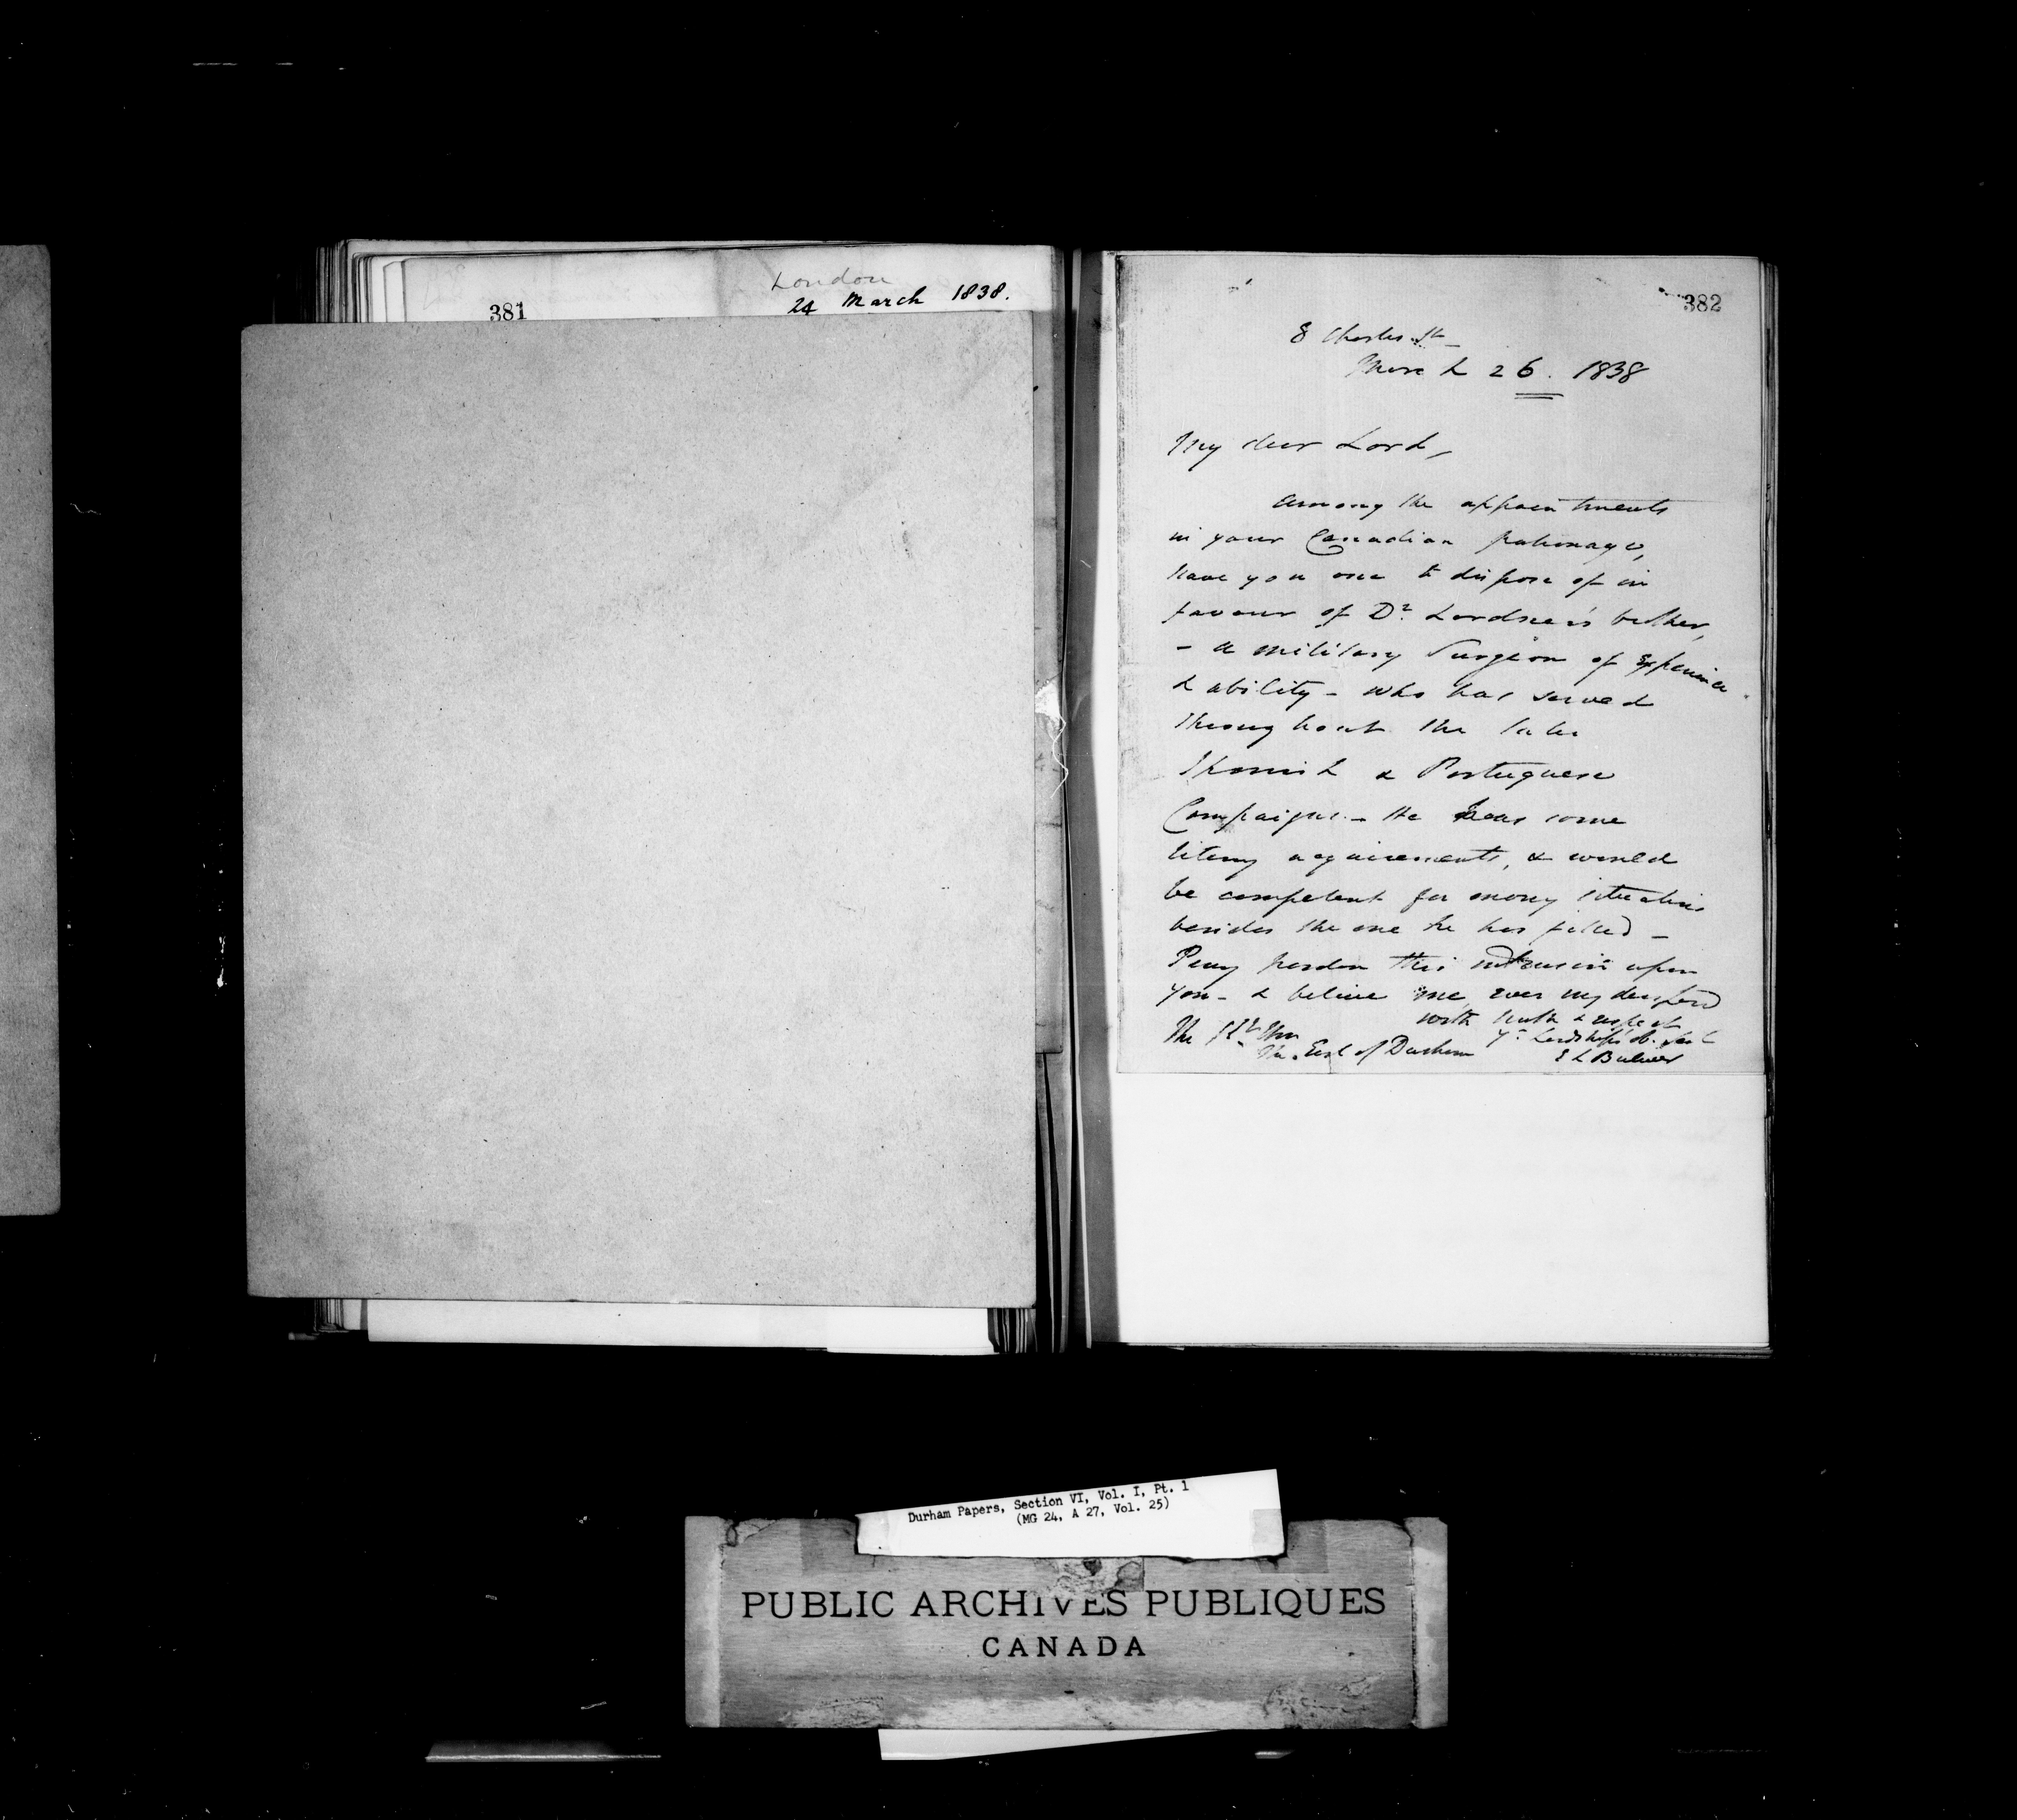 London
24 March 1838.
381
382
8 Charles St
March 26. 1838
My dear Lord,
Among the appointments
in your Canadian patronage,
have you one to dispose of in
favour of Dr. Lardner's brother,
- a military Surgeon of Experience
& ability - who has served
throughout the late
Spanish & Portuguese
Campaigns. - He has some
literary acquirements, & would
be competent for many situations
besides the one he has filled -
Pray pardon this intrusion upon
you - & believe me, ever my dear Lord
with truth & respect
Yr Lordship's ob. Sert
E L Bulwer
The Rt Hon
The Earl of Durham
Durham Papers, Section VI, Vol. I, Pt. 1
(MG 24, A 27, Vol. 25)
PUBLIC ARCHIVES PUBLIQUES
CANADA